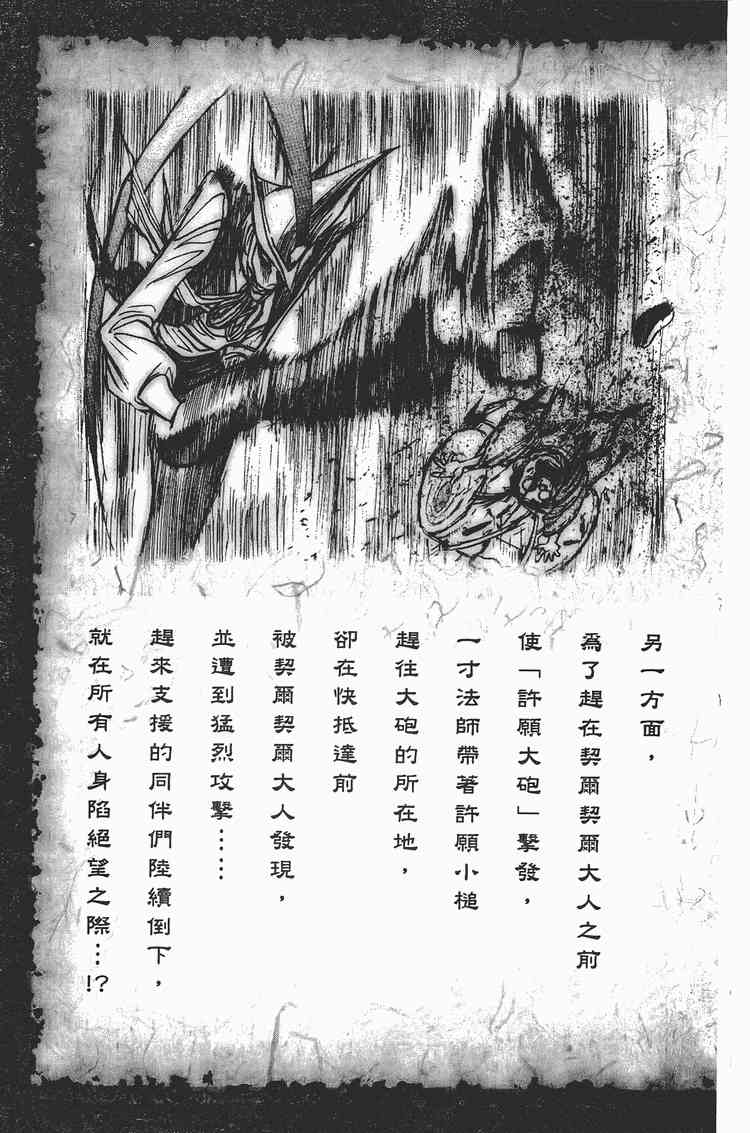 另一方面，
為了趕在契爾契爾大人之前
使「許願大砲」擊發，
一才法師帶著許願小槌
趕往大砲的所在地，
卻在快抵達前
被契爾契爾大人發現，
並遭到猛烈攻擊……
趕來支援的同伴們陸續倒下，
就在所有人身陷絕望之際…!?